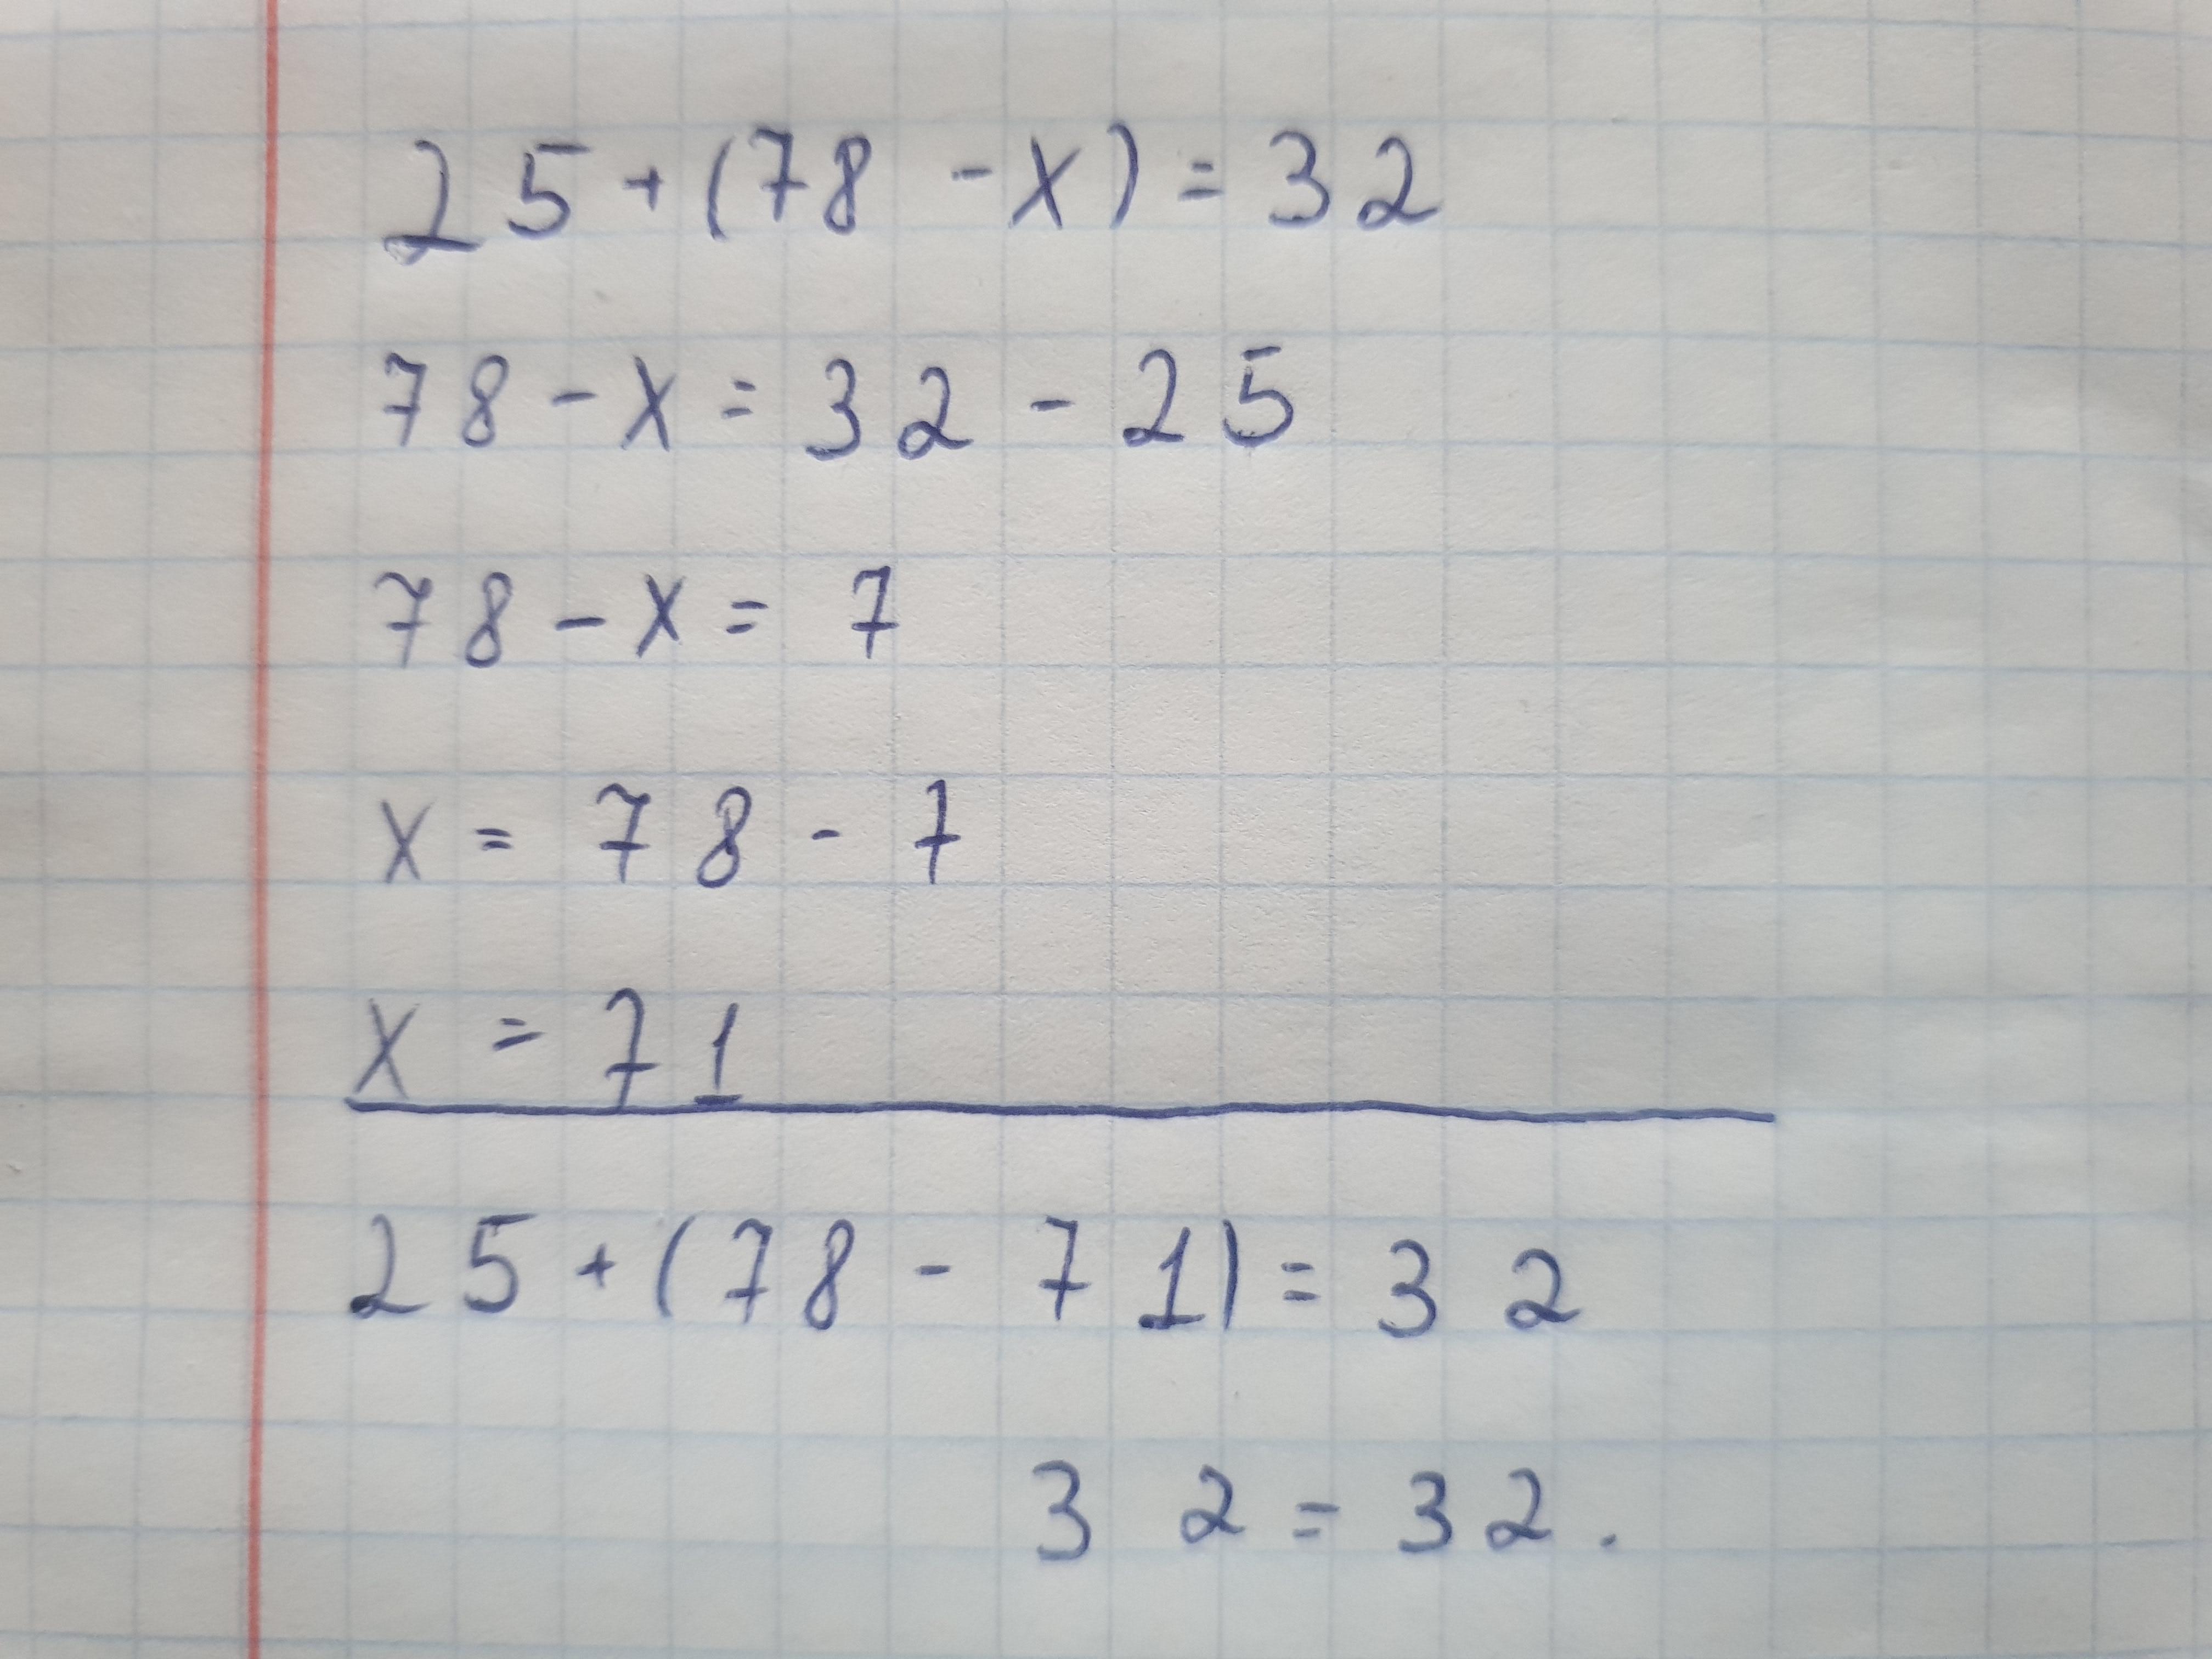 25+(78-x)=32
78-x=32-25
78-x=7
x=78-7
x=71
25+(78-71)=32
32=32.